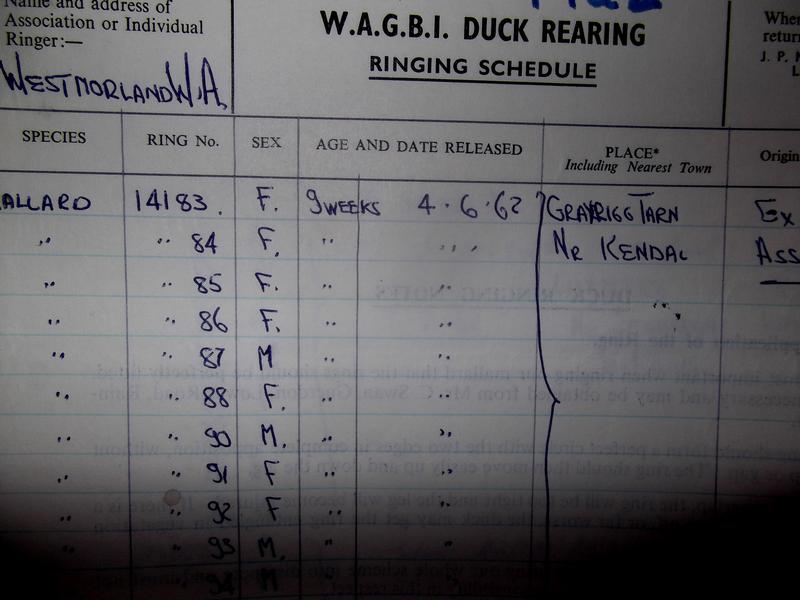 Name and address of
Association or Individual
Ringer:—
WESTMORLAND W.A.
W.A.G.B.I. DUCK REARING
RINGING SCHEDULE
When
return
J. P.
L
SPECIES RING No. SEX AGE AND DATE RELEASED PLACE* Origin
Including Nearest Town
ALLARD 14183. F. 9 WEEKS 4.6.62 GRAYRIGG TARN Ex
" " 84 F. " " NR KENDAL ASS
" " 85 F. " " "
" " 86 F. " "
" " 87 M " "
" " 88 F. " "
" " 90 M. " "
" " 91 F " "
" " 92 F " "
" " 93 M. " "
" " 94 M " "